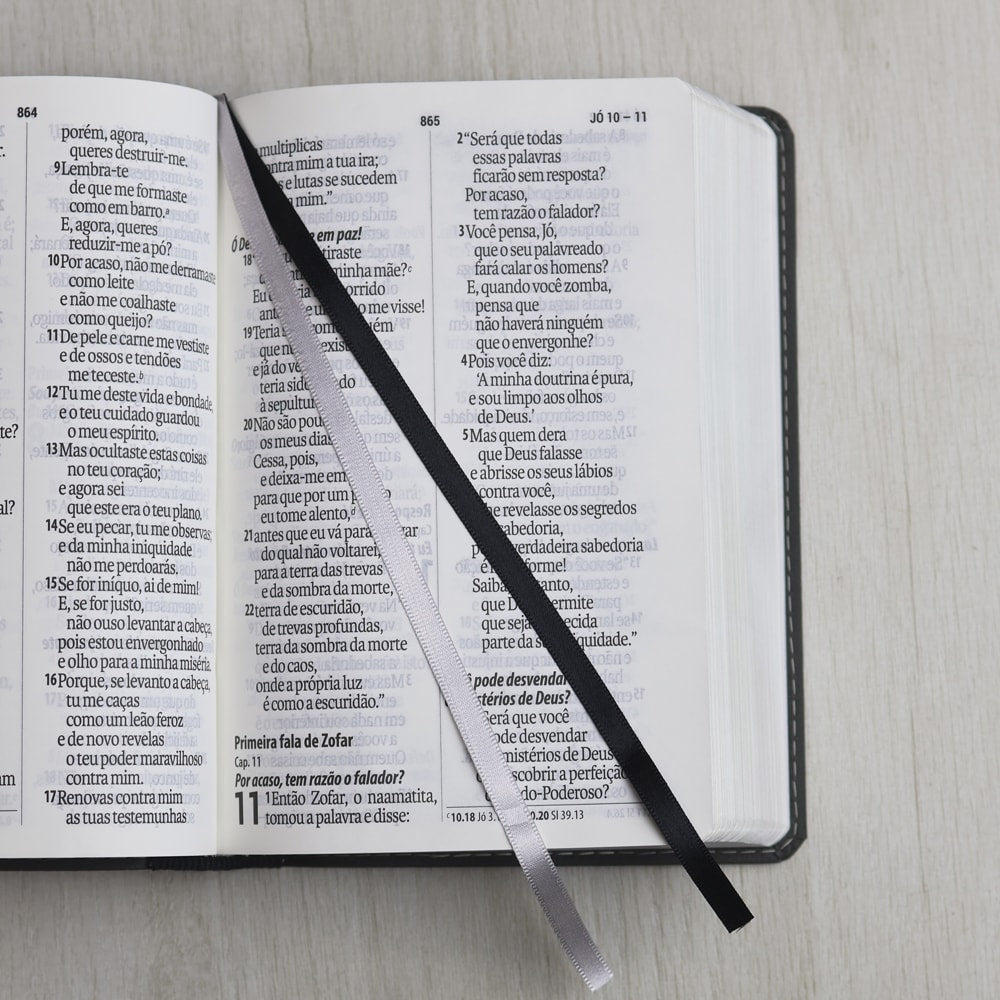 864
porém, agora,
queres destruir-me.
9 Lembra-te
de que me formaste
como em barro.a
E, agora, queres
reduzir-me a pó?
10 Por acaso, não me derramaste
como leite
e não me coalhaste
como queijo?
11 De pele e carne me vestiste
e de ossos e tendões
me teceste.b
12 Tu me deste vida e bondade,
e o teu cuidado guardou
o meu espírito.
13 Mas ocultaste estas coisas
no teu coração;
e agora sei
que este era o teu plano.
14 Se eu pecar, tu me observas;
e da minha iniquidade
não me perdoarás.
15 Se for iníquo, ai de mim!
E, se for justo,
não ouso levantar a cabeça,
pois estou envergonhado
e olho para a minha miséria.
16 Porque, se levanto a cabeça,
tu me caças
como um leão feroz
e de novo revelas
o teu poder maravilhoso
contra mim.
17 Renovas contra mim
as tuas testemunhas
te?
al?
am
865
multiplicas
contra mim a tua ira;
e lutas se sucedem
mim.”
e em paz!
18
minha mãe?c
Eu
me visse!
19 Teria
que
e já do
teria
à
20 Não são
os meus dias
Cessa, pois,
e deixa-me em
para que por um
eu tome alento,d
21 antes que eu vá para
do qual não voltarei,
para a terra das trevas
e da sombra da morte,
22 terra de escuridão,
de trevas profundas,
terra da sombra da morte
e do caos,
onde a própria luz
é como a escuridão.”
Primeira fala de Zofar
Cap. 11
Por acaso, tem razão o falador?
11 1 Então Zofar, o naamatita,
tomou a palavra e disse:
JÓ 10 – 11
2 “Será que todas
essas palavras
ficarão sem resposta?
Por acaso,
tem razão o falador?
3 Você pensa, Jó,
que o seu palavreado
fará calar os homens?
E, quando você zomba,
pensa que
não haverá ninguém
que o envergonhe?
4 Pois você diz:
‘A minha doutrina é pura,
e sou limpo aos olhos
de Deus.’
5 Mas quem dera
que Deus falasse
e abrisse os seus lábios
contra você,
revelasse os segredos
sabedoria,
verdadeira sabedoria
Saiba,
que
que seja
parte da
pode desvendar
mistérios de Deus?
Será que você
pode desvendar
mistérios de Deus
descobrir a perfeição
c 10.18 Jó 3.
10.20 Sl 39.13